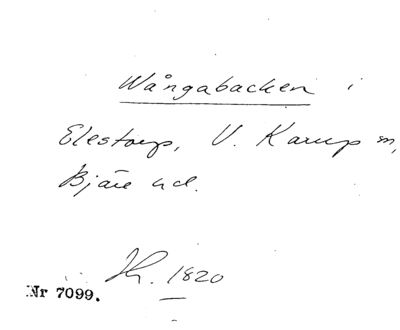 Wångabacken i
Elestorp, V. Karup sn,
Bjäre hd.
Jh. 1820
Nr 7099.